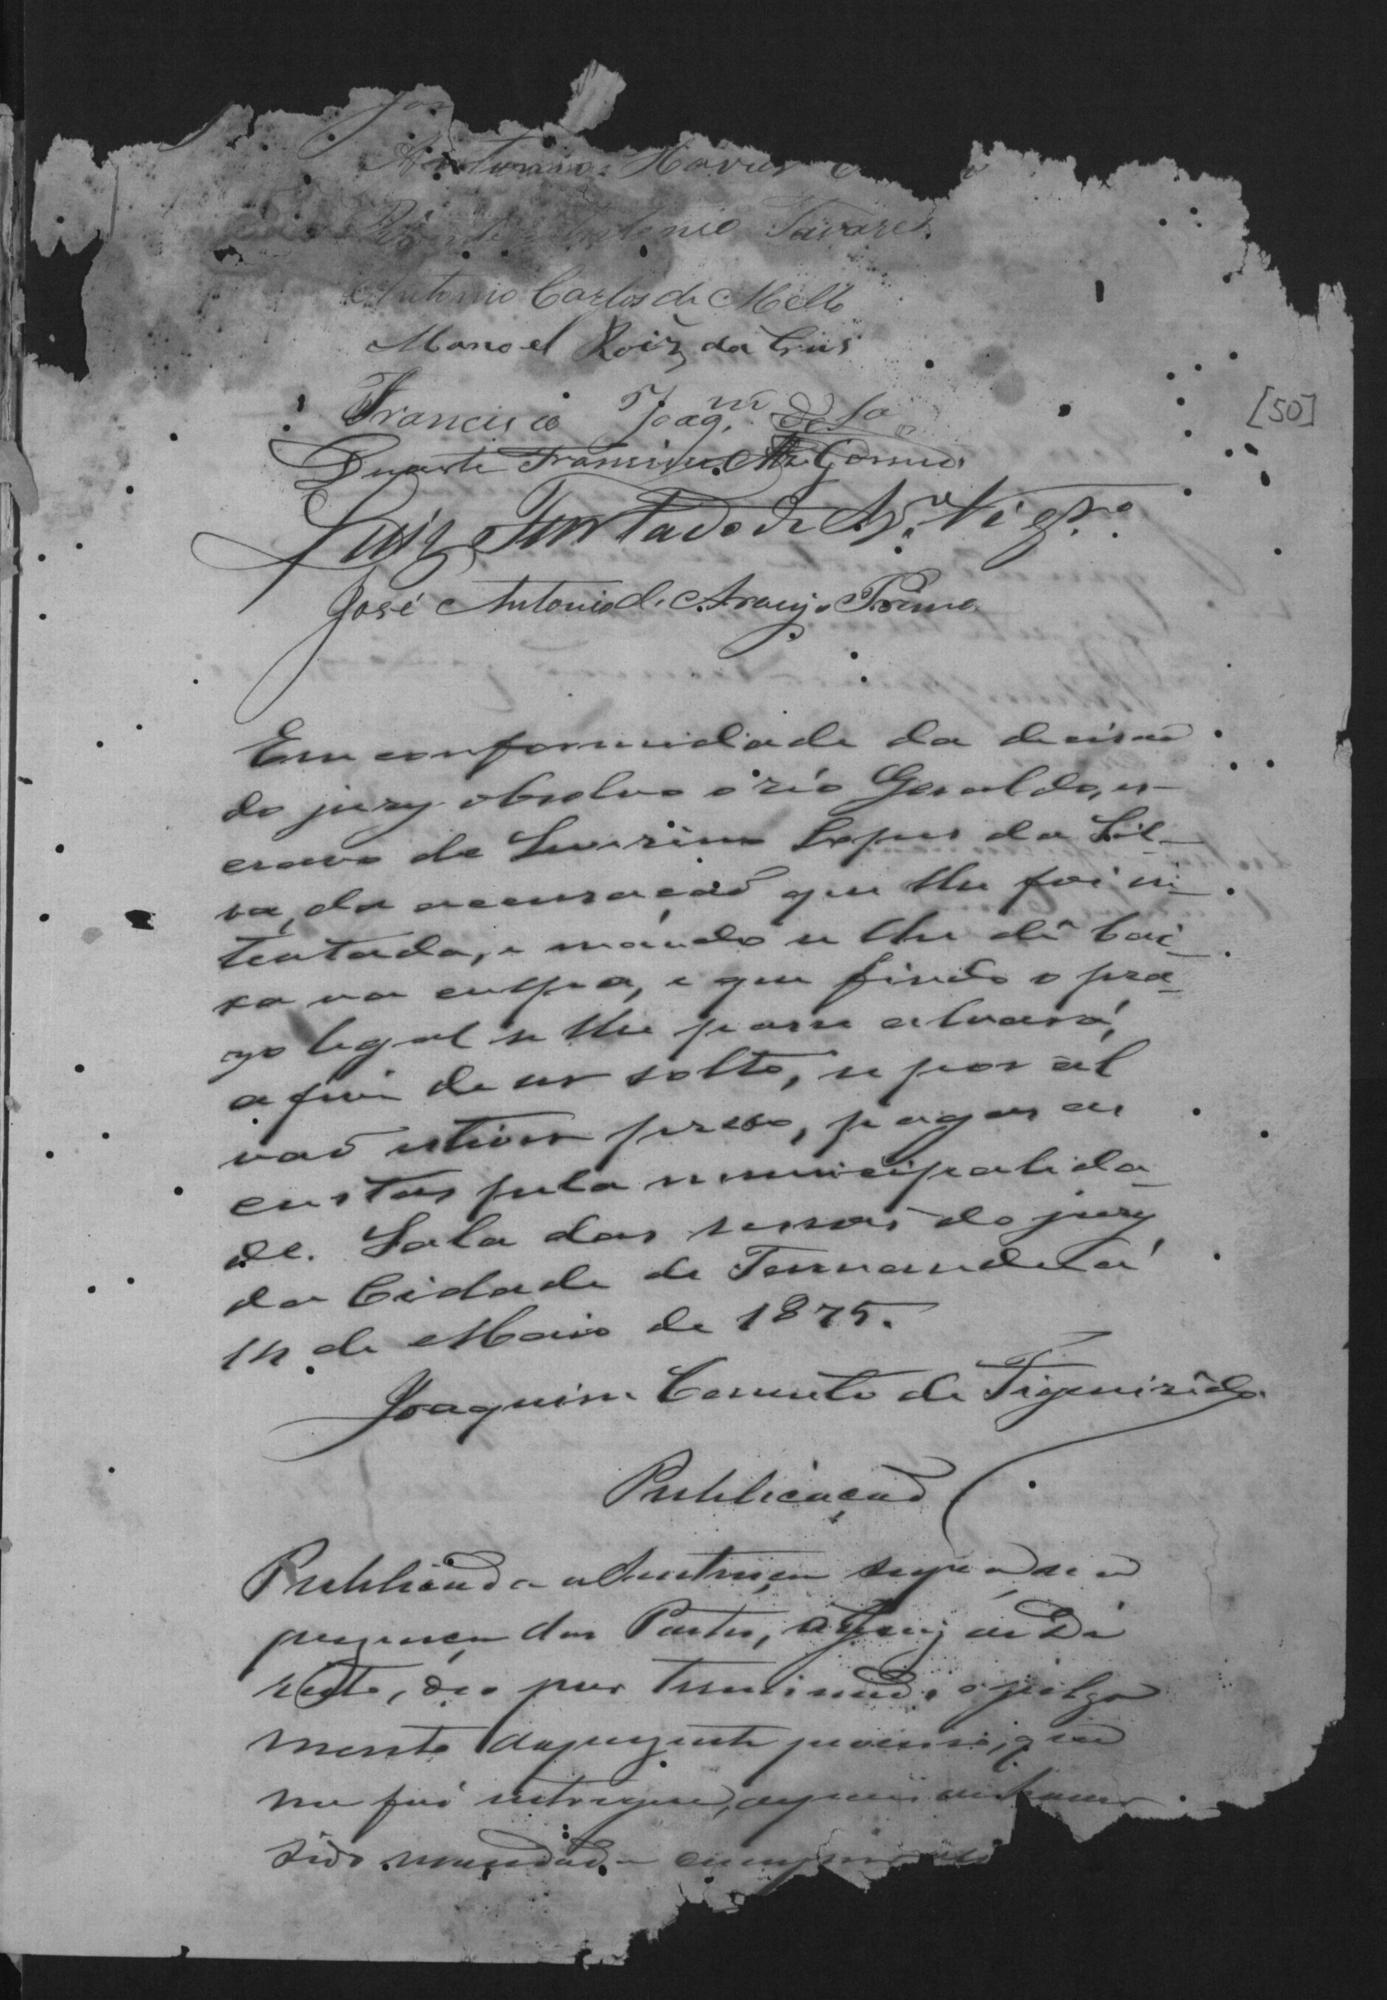 Antonio
Antonio Tavares
Antonio Carlos de Mello
Manoel Roiz da Crus
[50]
Francisco Joaqm. de Sa
Duarte Francisco Gomes
Luiz Furtado de
José Antonio de Araujo Primo
Em conformidade da decisão
do jury absolvo o réo Geraldo, es-
cravo de Severino Lopes da Sil-
va, da accusação que lhe foi in-
tentada, e mando se lhe dê bai-
xa na culpa, e que findo o pra-
zo legal se lhe passe alvará,
a fim de ser solto, se por al
não estiver preso, pagas as
custas pela municipalida-
de. Sala das sessões do jury
da Cidade de
14 de Maio de 1875.
Joaquim
Publicação
Publicada a Sentença supra na
prezença das Partes, o Juiz de Di
reito, deo por terminado o julga
mento do prezente processo, que
me foi entregue,
sido mandado